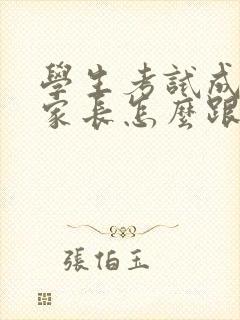 學生考試成
家長怎麼跟
張伯玉